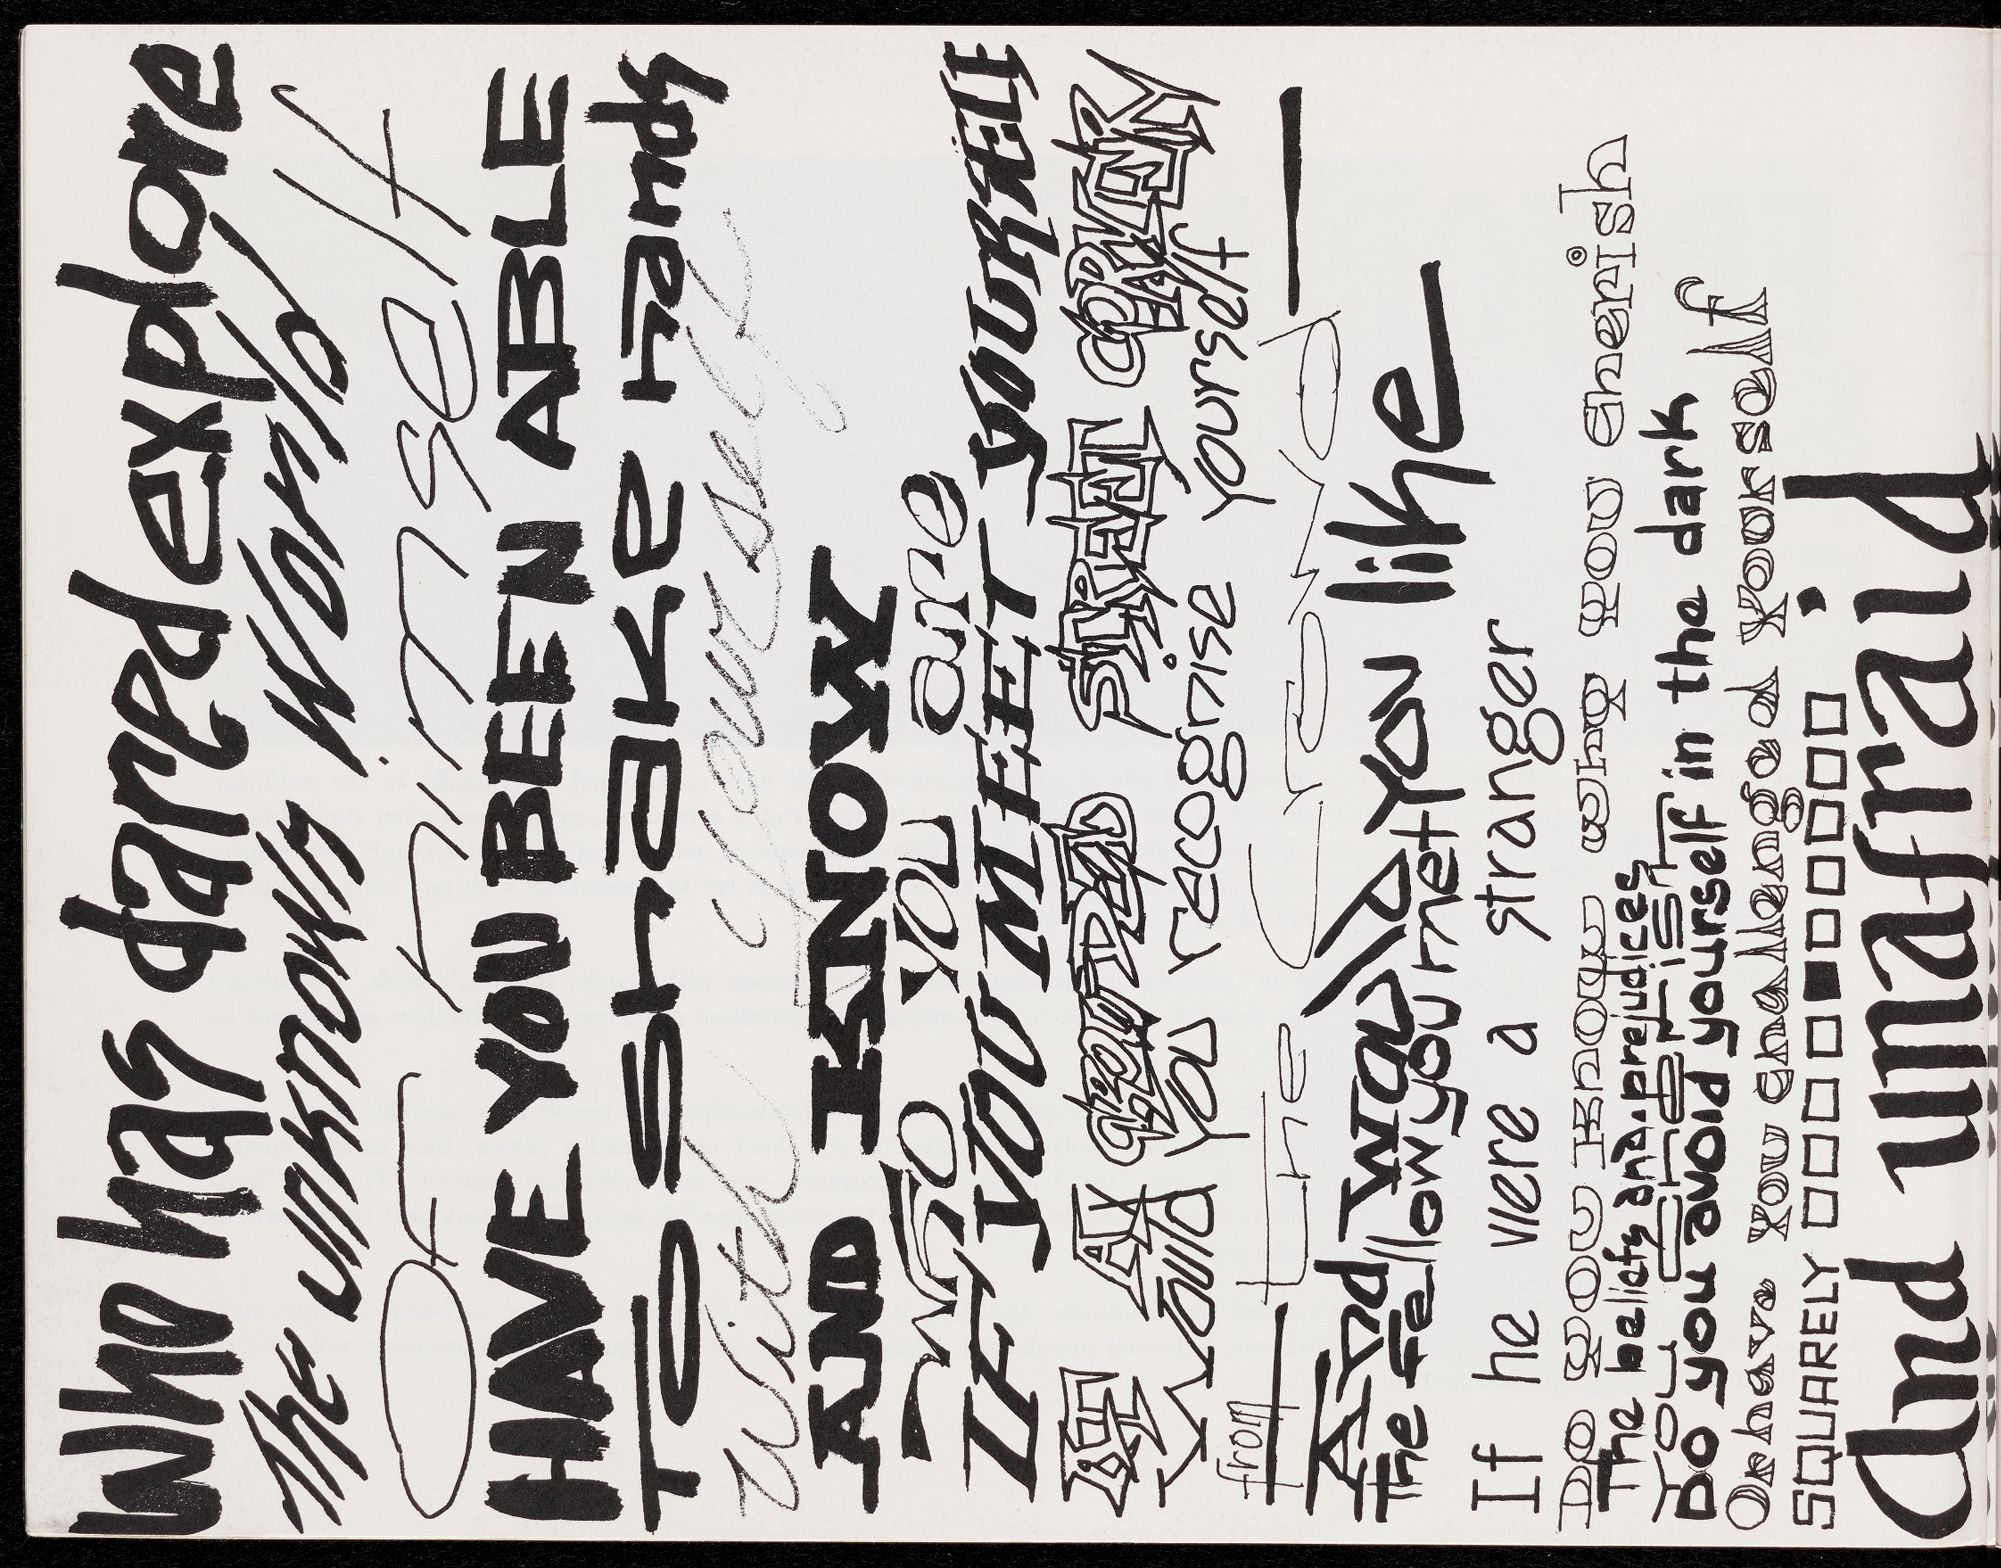 Who has dared explore
The unknown World
OF himself
HAVE YOU BEEN ABLE
To shake hands
with yourself
AND KNOW
who you are
IF YOU MEET YOURSELF
AT A CROWDED STREET CORNER
Would you recognise yourself
from the crowd
And would you like
The fellow you met
If he were a stranger
Do you know why you cherish
The beliefs and prejudices
You cherish
Do you avoid yourself in the dark
Or have you challenged yourself
SQUARELY
And unafraid